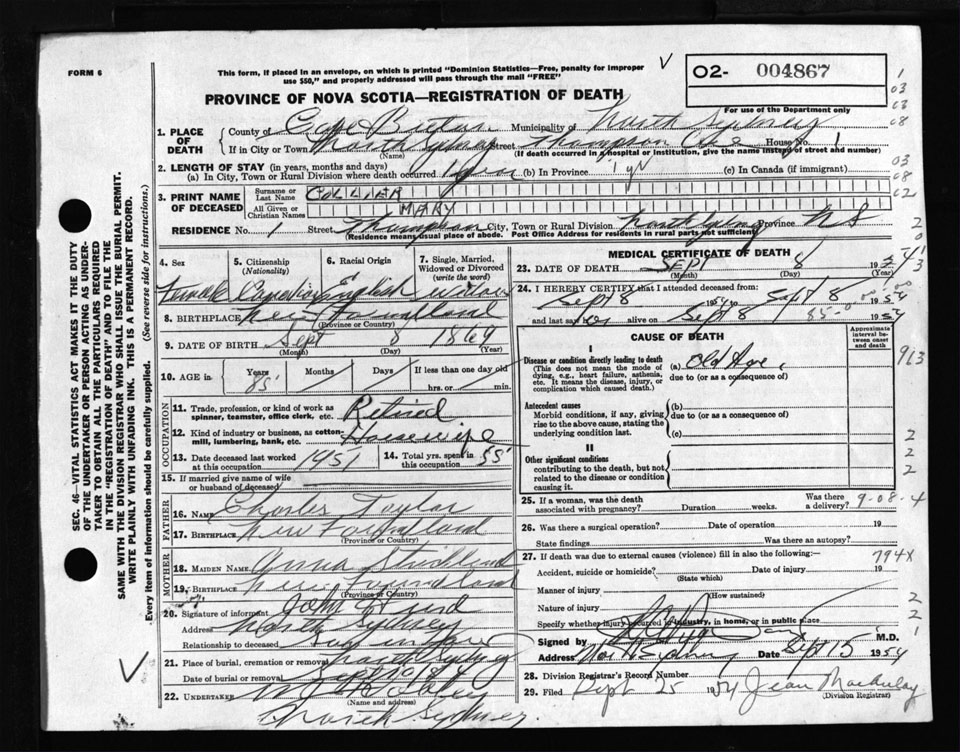 FORM 6
This form, if placed in an envelope, on which is printed "Dominion Statistics—Free, penalty for improper
use $50," and properly addressed will pass through the mail "FREE"
O2- 004867
For use of the Department only
PROVINCE OF NOVA SCOTIA—REGISTRATION OF DEATH
1. PLACE OF DEATH
County of Cape Breton Municipality of North Sydney
If in City or Town North Sydney Street Thompson Ave House No. 1
(Name) (If death occurred in a hospital or institution, give the name instead of street and number)
2. LENGTH OF STAY (in years, months and days)
(a) In City, Town or Rural Division where death occurred 1 yr (b) In Province 1 yr (c) In Canada (if immigrant)
3. PRINT NAME OF DECEASED
Surname or Last Name COLLIER
All Given or Christian Names MARY
RESIDENCE No. 1 Street Thompson City, Town or Rural Division North Sydney Province N S
(Residence means usual place of abode. Post Office Address for residents in rural parts not sufficient)
4. Sex Female
5. Citizenship (Nationality) Canadian
6. Racial Origin English
7. Single, Married, Widowed or Divorced (write the word) widow
8. BIRTHPLACE New Foundland
(Province or Country)
9. DATE OF BIRTH Sept 8 1869
(Month) (Day) (Year)
10. AGE in Years 85 Months Days If less than one day old
hrs. or min.
OCCUPATION
11. Trade, profession, or kind of work as spinner, teamster, office clerk, etc. Retired
12. Kind of industry or business, as cotton-mill, lumbering, bank, etc. Housewife
13. Date deceased last worked at this occupation 1951 14. Total yrs. spent in this occupation 55
15. If married give name of wife or husband of deceased
FATHER
16. NAME Charles Taylor
17. BIRTHPLACE New Foundland
(Province or Country)
MOTHER
18. MAIDEN NAME Anna Strickland
19. BIRTHPLACE New Foundland
(Province or Country)
20. Signature of informant John
Address North Sydney
Relationship to deceased
21. Place of burial, cremation or removal North Sydney
Date of burial or removal Sept 10
22. UNDERTAKER
(Name and address)
North Sydney.
MEDICAL CERTIFICATE OF DEATH
23. DATE OF DEATH SEPT 8 1954
(Month) (Day) (Year)
24. I HEREBY CERTIFY that I attended deceased from:
Sept 8 1954 to Sept 8 1954
and last saw her alive on Sept 8 1954
CAUSE OF DEATH
Approximate interval between onset and death
I
Disease or condition directly leading to death (a) Old Age,
(This does not mean the mode of dying, e.g., heart failure, asthenia, etc. It means the disease, injury, or complication which caused death.)
due to (or as a consequence of)
Antecedent causes (b)
Morbid conditions, if any, giving rise to the above cause, stating the underlying condition last.
due to (or as a consequence of)
(c)
II
Other significant conditions
contributing to the death, but not related to the disease or condition causing it.
25. If a woman, was the death associated with pregnancy? Duration weeks. Was there a delivery?
9-08-4
26. Was there a surgical operation? Date of operation 19
State findings Was there an autopsy?
27. If death was due to external causes (violence) fill in also the following:—
794X
Accident, suicide or homicide? Date of injury 19
(State which)
Manner of injury
(How sustained)
Nature of injury
Specify whether injury occurred in industry, in home, or in public place
Signed by M.D.
Address North Sydney Date Sept 15 1954
28. Division Registrar's Record Number
29. Filed Sept 25 1954 Jean MacAulay
(Division Registrar)
SEC. 46—VITAL STATISTICS ACT MAKES IT THE DUTY
OF THE UNDERTAKER OR PERSON ACTING AS UNDER-
TAKER TO OBTAIN ALL THE PARTICULARS REQUIRED
IN THE "REGISTRATION OF DEATH" AND TO FILE THE
SAME WITH THE DIVISION REGISTRAR WHO SHALL ISSUE THE BURIAL PERMIT.
WRITE PLAINLY WITH UNFADING INK. THIS IS A PERMANENT RECORD.
Every item of information should be carefully supplied. (See reverse side for instructions.)